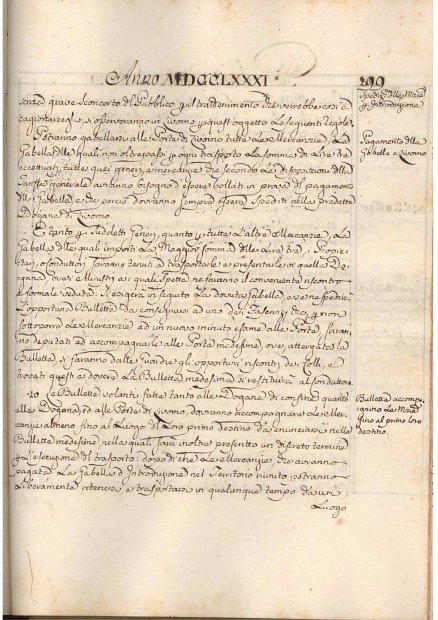 Anno MDCCLXXXI.
senza grave sconcerto del Pubblico p il trattenimento che verrebbe così a
cagionarsegli, s'osserveranno in Livorno p quest'oggetto le seguenti regole.
Potranno gabellarsi alle Porte di Livorno tutte le Mercanzie, la
Gabella delle quali non oltrepassi p ogni trasporto la somma di Lire tre
eccettuati tutti quei generi, e mercanzie che secondo le disposizioni della
Tariffa generale avranno bisogno d'essere bollati in prova del pagamento
della Gabella, e che perciò dovranno sempre essere spediti nella predetta
Dogana di Livorno.
E tanto p i sudetti Generi, quanto p tutte l'altre Mercanzie, la
Gabella delle quali importi la maggior somma delle Lire tre, i Proprie-
tarj, o Conduttori saranno tenuti a trasportarle e presentarle in quella Do-
gana, ove i Ministri a i quali spetta ne faranno il conveniente riscontro
e formale veduta. Si esigerà in seguito la dovuta Gabella, e se ne spedirà
l'opportuna Bulletta da consegnarsi ad uno dei Tasieri, che p non
sottoporre le Mercanzie ad un nuovo minuto esame alle Porte saran-
no deputati ad accompagnarle alle Porte medesime, ove attergata la
Bulletta si faranno dalle Guardie gli opportuni riscontri dei Colli, e
trovati questi a dovere la Bulletta medesima si restituirà al Conduttore.
10 Le Bullette volanti fatte tanto alle Dogane di confine quanto
alle Dogane, ed alle Porte di Livorno dovranno accompagnare le Mer-
canzie almeno fino al Luogo del loro primo destino da enunciarsi nelle
Bullette medesime, nelle quali sarà inoltre prescritto un discreto termine
p l'esecuzione del trasporto: dopo di che le Mercanzie che avranno
pagata la Gabella d'Introduzione nel Territorio riunito potranno
liberamente ritenersi e trasportarsi in qualunque tempo da un
Luogo
299
Spediz.ne delle Merci
p Introduzione
Pagamento della
Gabella a Livorno
Bullette accompa-
gnino le Merci
fino al primo loro
destino.